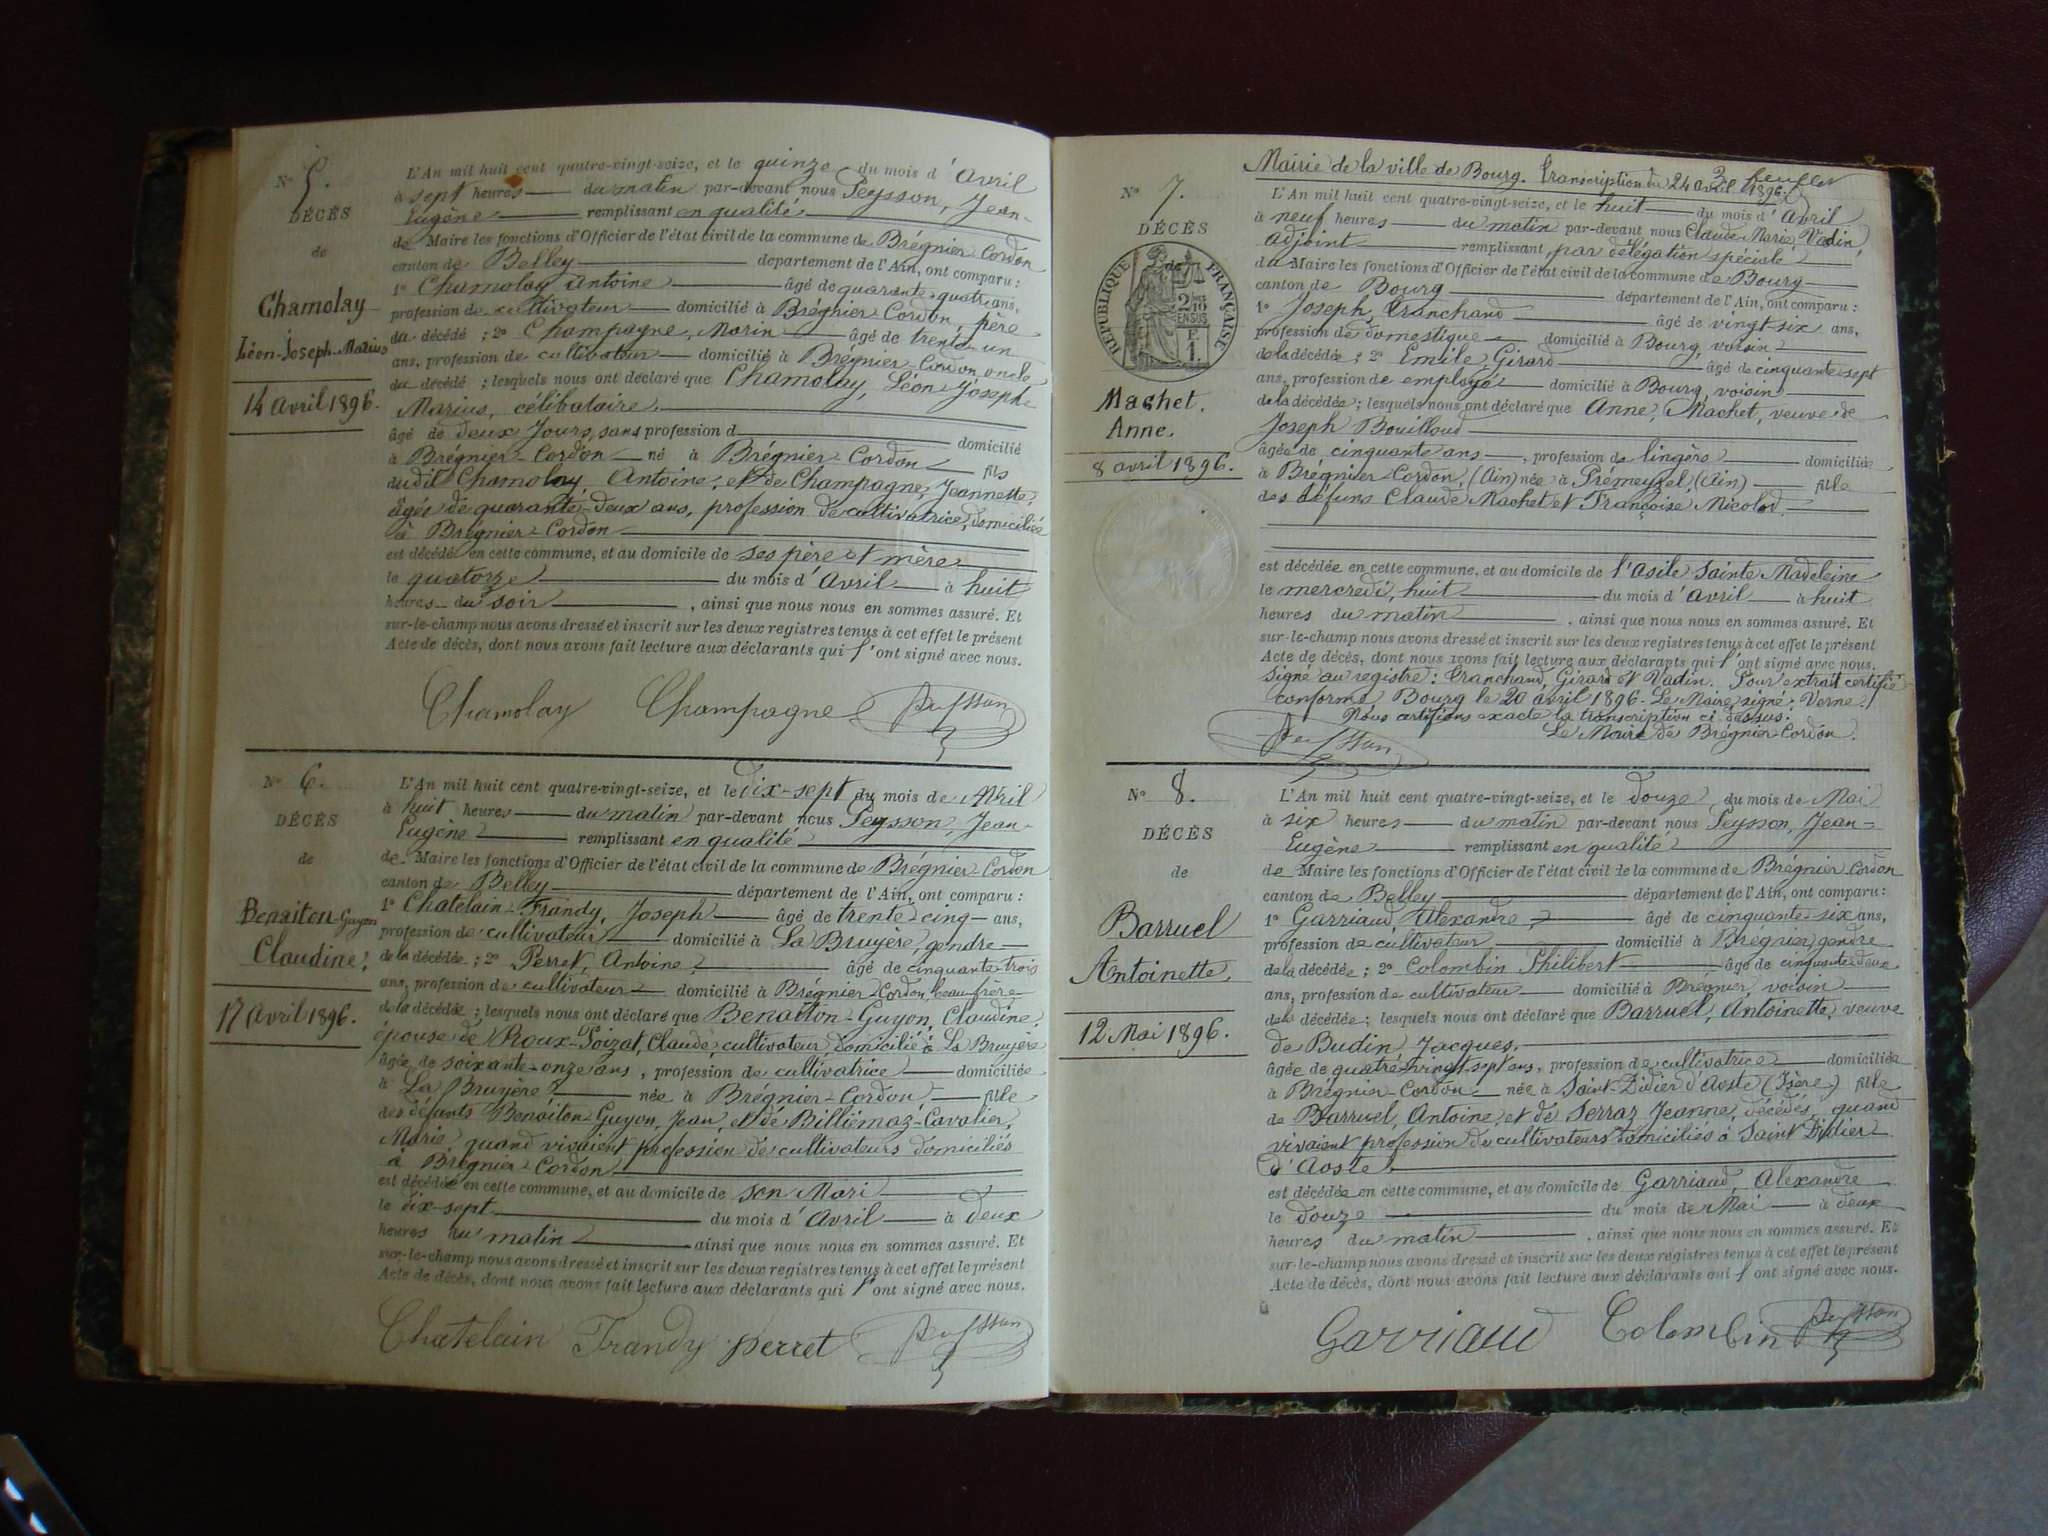 Nº 5.
DÉCÈS
de
Chamolay
Léon-Joseph-Marius
14 Avril 1896.
L'An mil huit cent quatre-vingt-seize, et le quinze du mois d'Avril
à sept heures du matin par-devant nous Peysson, Jean-
Eugène remplissant en qualité
de Maire les fonctions d'Officier de l'état civil de la commune de Brégnier Cordon
canton de Belley département de l'Ain, ont comparu :
1º Chamolay Antoine âgé de quarante-quatre ans,
profession de cultivateur domicilié à Brégnier Cordon, père
du décédé ; 2º Champagne, Marin âgé de trente un
ans, profession de cultivateur domicilié à Brégnier-Cordon oncle
du décédé ; lesquels nous ont déclaré que Chamolay, Léon-Joseph-
Marius, célibataire
âgé de deux Jours, sans profession d domicilié
à Brégnier-Cordon né à Brégnier Cordon fils
dudit Chamolay Antoine, et de Champagne, Jeannette,
âgée de quarante-deux ans, profession de cultivatrice, domiciliée
à Brégnier-Cordon
est décédé en cette commune, et au domicile de ses père et mère
le quatorze du mois d'Avril à huit
heures du soir , ainsi que nous nous en sommes assuré. Et
sur-le-champ nous avons dressé et inscrit sur les deux registres tenus à cet effet le présent
Acte de décès, dont nous avons fait lecture aux déclarants qui l'ont signé avec nous.
Chamolay Champagne Peysson
Nº 6.
DÉCÈS
de
Benaiton-Guyon
Claudine.
17 Avril 1896.
L'An mil huit cent quatre-vingt-seize, et le Dix-sept du mois de Avril
à huit heures du matin par-devant nous Peysson, Jean-
Eugène remplissant en qualité
de Maire les fonctions d'Officier de l'état civil de la commune de Brégnier-Cordon
canton de Belley département de l'Ain, ont comparu :
1º Chatelain-Frandy, Joseph âgé de trente cinq ans,
profession de cultivateur domicilié à La Bruyère, gendre
de la décédée ; 2º Perret, Antoine âgé de cinquante-trois
ans, profession de cultivateur domicilié à Brégnier Cordon, beau frère
de la décédée ; lesquels nous ont déclaré que Benaiton-Guyon, Claudine,
épouse de Roux-Poizat, Claude, cultivateur, domicilié à La Bruyère
âgée de soixante-onze ans, profession de cultivatrice domiciliée
à La Bruyère née à Brégnier-Cordon fille
des défunts Benaiton-Guyon, Jean, et de Billiemaz-Cavalier,
Marie, quand vivaient profession de cultivateurs domiciliés
à Brégnier Cordon
est décédée en cette commune, et au domicile de son Mari
le dix-sept du mois d'Avril à deux
heures du matin ainsi que nous nous en sommes assuré. Et
sur-le-champ nous avons dressé et inscrit sur les deux registres tenus à cet effet le présent
Acte de décès, dont nous avons fait lecture aux déclarants qui l'ont signé avec nous.
Chatelain Frandy Perret Peysson
3 feuillet
Mairie de la ville de Bourg. Transcription du 24 avril 1896.
Nº 7.
DÉCÈS
de
RÉPUBLIQUE FRANÇAISE
2/10 EN SUS
1 F.
Machet.
Anne.
8 avril 1896.
L'An mil huit cent quatre-vingt-seize, et le huit du mois d'Avril
à neuf heures du matin par-devant nous Claude Marie Vadin,
adjoint remplissant par délégation spéciale
du Maire les fonctions d'Officier de l'état civil de la commune de Bourg
canton de Bourg département de l'Ain, ont comparu :
1º Joseph Tranchand âgé de vingt-six ans,
profession de domestique domicilié à Bourg, voisin
de la décédée ; 2º Emile Girard âgé de cinquante-sept
ans, profession de employé domicilié à Bourg, voisin
de la décédée ; lesquels nous ont déclaré que Anne Machet, veuve de
Joseph Bouilloud
âgée de cinquante ans , profession de lingère domiciliée
à Brégnier-Cordon, (Ain) née à Prémeyzel, (Ain) fille
des défunts Claude Machet et Françoise Nicolod.
est décédée en cette commune, et au domicile de l'asile Sainte Madeleine
le mercredi, huit du mois d'avril à huit
heures du matin , ainsi que nous nous en sommes assuré. Et
sur-le-champ nous avons dressé et inscrit sur les deux registres tenus à cet effet le présent
Acte de décès, dont nous avons fait lecture aux déclarants qui l'ont signé avec nous.
signé au registre : Tranchand, Girard et Vadin. Pour extrait certifié
conforme Bourg le 20 avril 1896 - Le Maire, signé : Verne.
Nous certifions exacte la transcription ci dessus.
Le Maire de Brégnier-Cordon.
Peysson
Nº 8.
DÉCÈS
de
Barruel
Antoinette.
12 Mai 1896.
L'An mil huit cent quatre-vingt-seize, et le douze du mois de Mai
à six heures du matin par-devant nous Peysson, Jean-
Eugène remplissant en qualité
de Maire les fonctions d'Officier de l'état civil de la commune de Brégnier Cordon
canton de Belley département de l'Ain, ont comparu :
1º Garriaud, Alexandre âgé de cinquante-six ans,
profession de cultivateur domicilié à Brégnier, gendre
de la décédée ; 2º Colombin Philibert âgé de cinquante-deux
ans, profession de cultivateur domicilié à Brégnier, voisin
de la décédée ; lesquels nous ont déclaré que Barruel, Antoinette, veuve
de Budin Jacques,
âgée de quatre-vingt sept ans, profession de cultivatrice domiciliée
à Brégnier-Cordon née à Saint-Didier d'Aoste (Isère) fille
de Barruel, Antoine, et de Serraz Jeanne, décédés, quand
vivaient profession de cultivateurs domiciliés à Saint Didier
d'Aoste
est décédée en cette commune, et au domicile de Garriaud, Alexandre
le douze du mois de Mai à deux
heures du matin , ainsi que nous nous en sommes assuré. Et
sur-le-champ nous avons dressé et inscrit sur les deux registres tenus à cet effet le présent
Acte de décès, dont nous avons fait lecture aux déclarants qui l'ont signé avec nous.
Garriaud Colombin Peysson